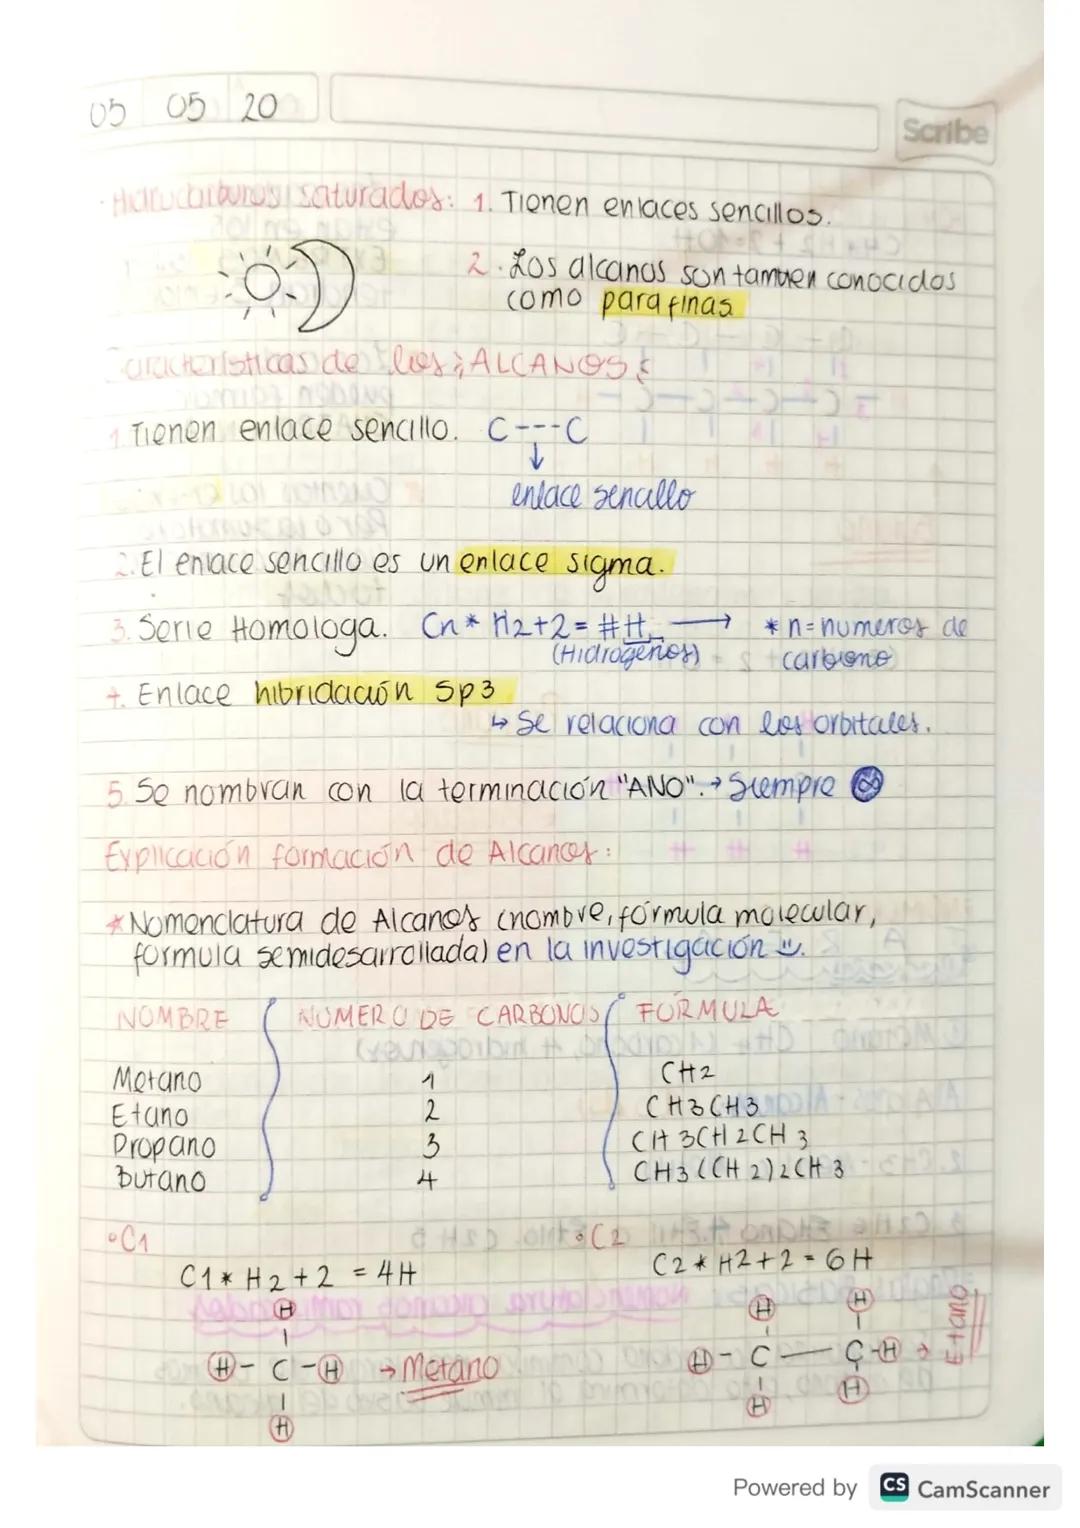 05 05 20
Scribe
· Hidrocarburos saturados: 1. Tienen enlaces sencillos.
2. Los alcanos son tambien conocidos
como parafinas
Características de los ALCANOS:
1. Tienen enlace sencillo. C---C
↓
enlace sencillo
2. El enlace sencillo es un enlace sigma.
3. Serie Homologa. Cn* H2+2=#H → *n=numeros de
(Hidrogenos) carbono
4. Enlace hibridación Sp3
↳ Se relaciona con los orbitales.
5. Se nombran con la terminación "ANO".→ Siempre
Explicación formación de Alcanos:
*Nomenclatura de Alcanos (nombre, fórmula molecular,
formula semidesarrollada) en la investigación
NOMBRE NUMERO DE CARBONOS FORMULA
Metano 1 CH2
Etano 2 CH3CH3
Propano 3 CH3CH2CH3
Butano 4 CH3(CH2)2CH3
°C1 °C2
C1* H2+2 = 4H C2* H2+2=6H
H H H
H-C-H → Metano H-C—C-H → Etano
H H H
Powered by CS CamScanner